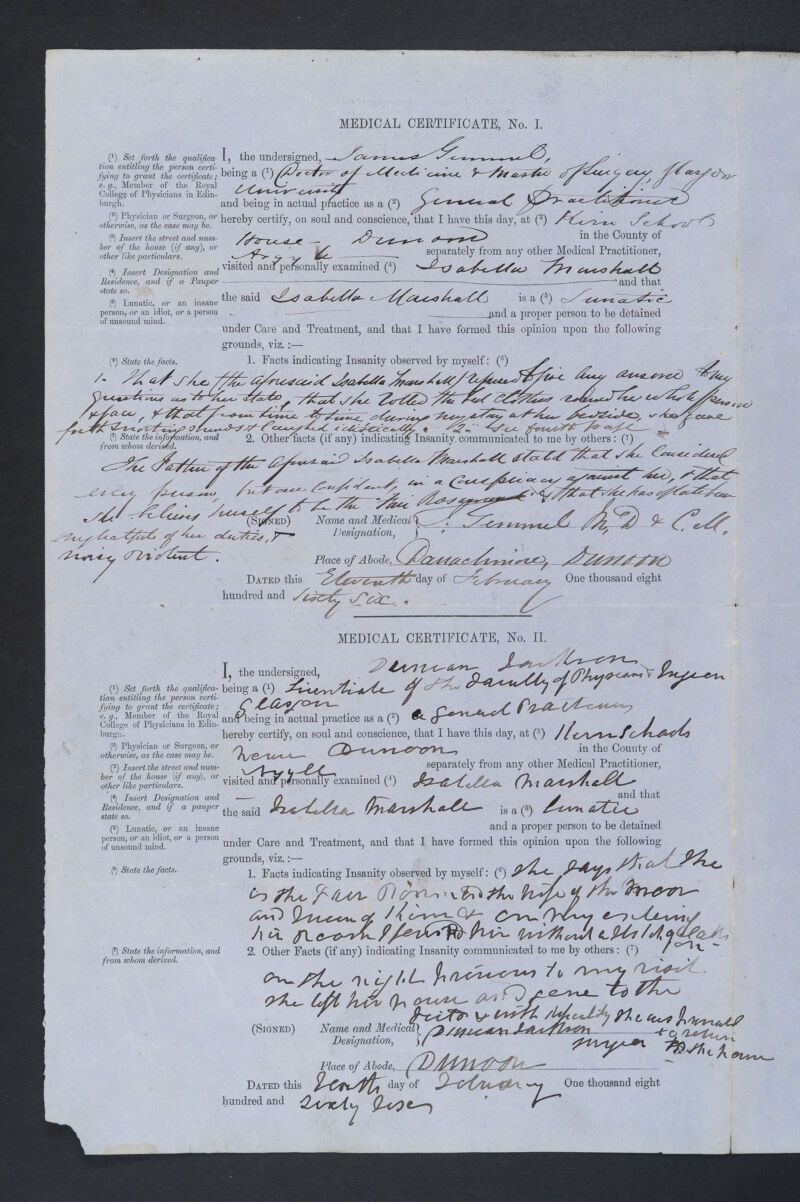 MEDICAL CERTIFICATE, No. I.
(1) Set forth the qualifica-
tion entitling the person certi-
fying to grant the certificate;
e. g., Member of the Royal
College of Physicians in Edin-
burgh.
(2) Physician or Surgeon, or
otherwise, as the case may be.
(3) Insert the street and num-
ber of the house (if any), or
other like particulars.
(4) Insert Designation and
Residence, and if a Pauper
state so.
(5) Lunatic, or an insane
person, or an idiot, or a person
of unsound mind.
I, the undersigned, James Gemmel,
being a (1) Doctor of Medicine & Master of Surgery, Glasgow
University
and being in actual practice as a (2) General Practitioner
hereby certify, on soul and conscience, that I have this day, at (3) Kirn School
House - Dunoon in the County of
Argyll separately from any other Medical Practitioner,
visited and personally examined (4) Isabella Marshall
and that
the said Isabella Marshall is a (5) Lunatic
and a proper person to be detained
under Care and Treatment, and that I have formed this opinion upon the following
grounds, viz. :—
(6) State the facts.
1. Facts indicating Insanity observed by myself: (6)
1. That she (the aforesaid Isabella Marshall) refused to give any answer to my
questions as to her state, that she rolled the bed clothes round her whole person
& face, & that from time to time during my stay at her bedside, she gave
forth snorting sounds & laughed idiotically. 2. See fourth page
(7) State the information, and
from whom derived.
2. Other facts (if any) indicating Insanity communicated to me by others: (7)
The Father of the aforesaid Isabella Marshall stated that she considered
every person, in a conspiracy against her, & that
she believes herself to be the Fair & that she has of late been
neglectful of her duties, &
noisy & violent.
(SIGNED) Name and Medical Designation, J. Gemmel M.D & C.M.
Place of Abode, Dunoon
DATED this Eleventh day of February One thousand eight
hundred and sixty six.
MEDICAL CERTIFICATE, No. II.
(1) Set forth the qualifica-
tion entitling the person certi-
fying to grant the certificate;
e. g., Member of the Royal
College of Physicians in Edin-
burgh.
(2) Physician or Surgeon, or
otherwise, as the case may be.
(3) Insert the street and num-
ber of the house (if any), or
other like particulars.
(4) Insert Designation and
Residence, and if a pauper
state so.
(5) Lunatic, or an insane
person, or an idiot, or a person
of unsound mind.
I, the undersigned, Duncan Jackson
being a (1) Licentiate of the Faculty of Physicians & Surgeon
Glasgow
and being in actual practice as a (2) a General Practitioner
hereby certify, on soul and conscience, that I have this day, at (3) Kirn Schools
near Dunoon in the County of
Argyll separately from any other Medical Practitioner,
visited and personally examined (4) Isabella Marshall
and that
the said Isabella Marshall is a (5) lunatic
and a proper person to be detained
under Care and Treatment, and that I have formed this opinion upon the following
grounds, viz. :—
(6) State the facts.
1. Facts indicating Insanity observed by myself: (6) She says that she
is the Fair the wife of the Moor
and Queen of Kirn & on my entering
her room I found her without a stitch of clothes
on
(7) State the information, and
from whom derived.
2. Other Facts (if any) indicating Insanity communicated to me by others: (7)
on the night previous to my visit
she left her house and gone to the
with difficulty she was
to the house
(SIGNED) Name and Medical Designation, Duncan Jackson
Surgeon
Place of Abode, Dunoon
DATED this Tenth day of February One thousand eight
hundred and Sixty Six